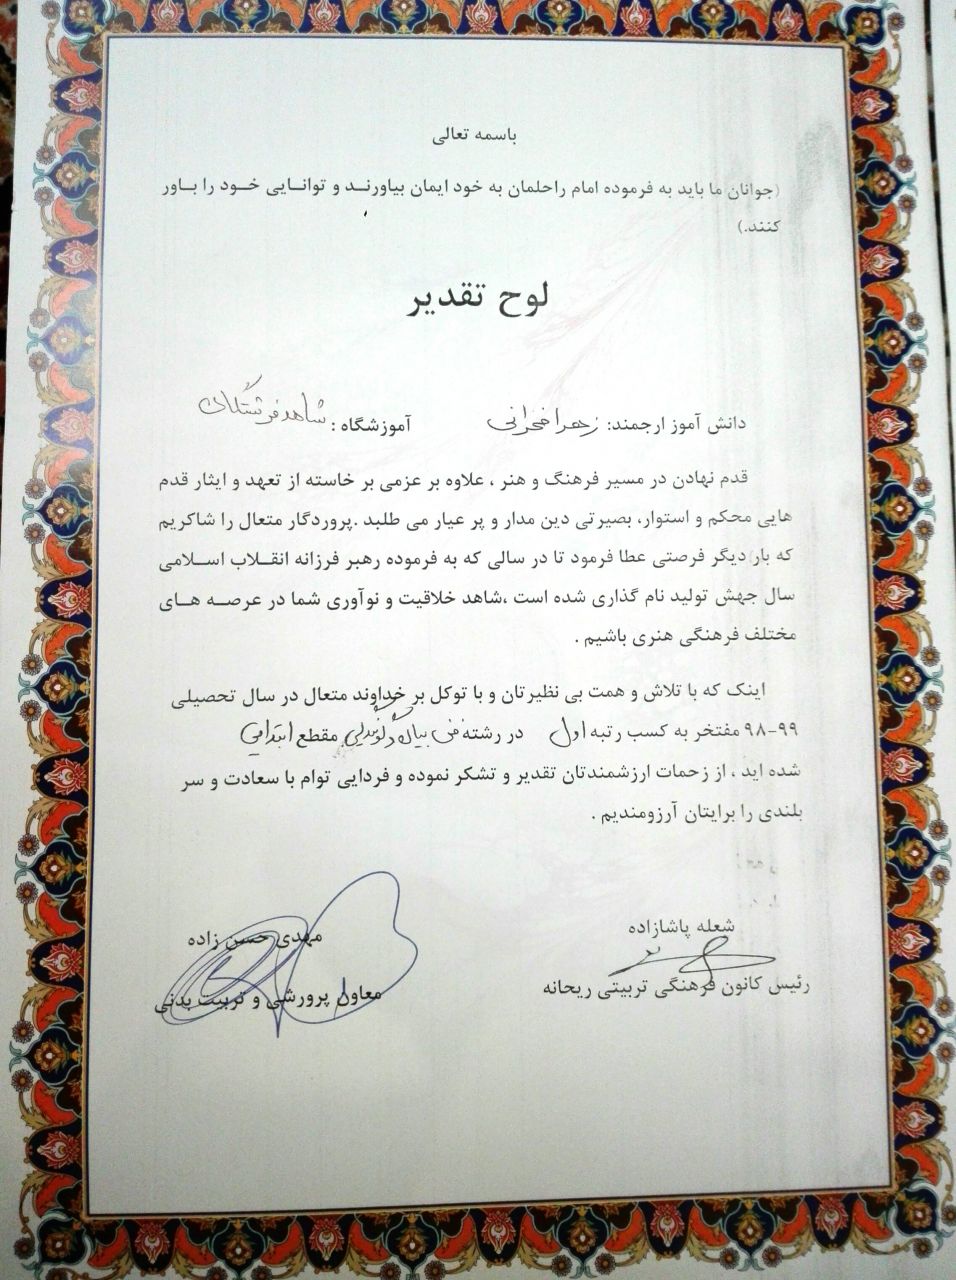 باسمه تعالی
(جوانان ما باید به فرموده امام راحلمان به خود ایمان بیاورند و توانایی خود را باور
کنند.)
لوح تقدیر
دانش آموز ارجمند: زهرا فخرانی آموزشگاه : شاهد فرشتگان
قدم نهادن در مسیر فرهنگ و هنر ، علاوه بر عزمی بر خاسته از تعهد و ایثار قدم
هایی محکم و استوار، بصیرتی دین مدار و پر عیار می طلبد .پروردگار متعال را شاکریم
که بار دیگر فرصتی عطا فرمود تا در سالی که به فرموده رهبر فرزانه انقلاب اسلامی
سال جهش تولید نام گذاری شده است ،شاهد خلاقیت و نوآوری شما در عرصه های
مختلف فرهنگی هنری باشیم .
اینک که با تلاش و همت بی نظیرتان و با توکل بر خداوند متعال در سال تحصیلی
۹۸-۹۹ مفتخر به کسب رتبه اول در رشته فن بیان و گویندگی مقطع ابتدایی
شده اید ، از زحمات ارزشمندتان تقدیر و تشکر نموده و فردایی توام با سعادت و سر
بلندی را برایتان آرزومندیم .
شعله پاشازاده
رئیس کانون فرهنگی تربیتی ریحانه
مهدی حسن زاده
معاون پرورشی و تربیت بدنی